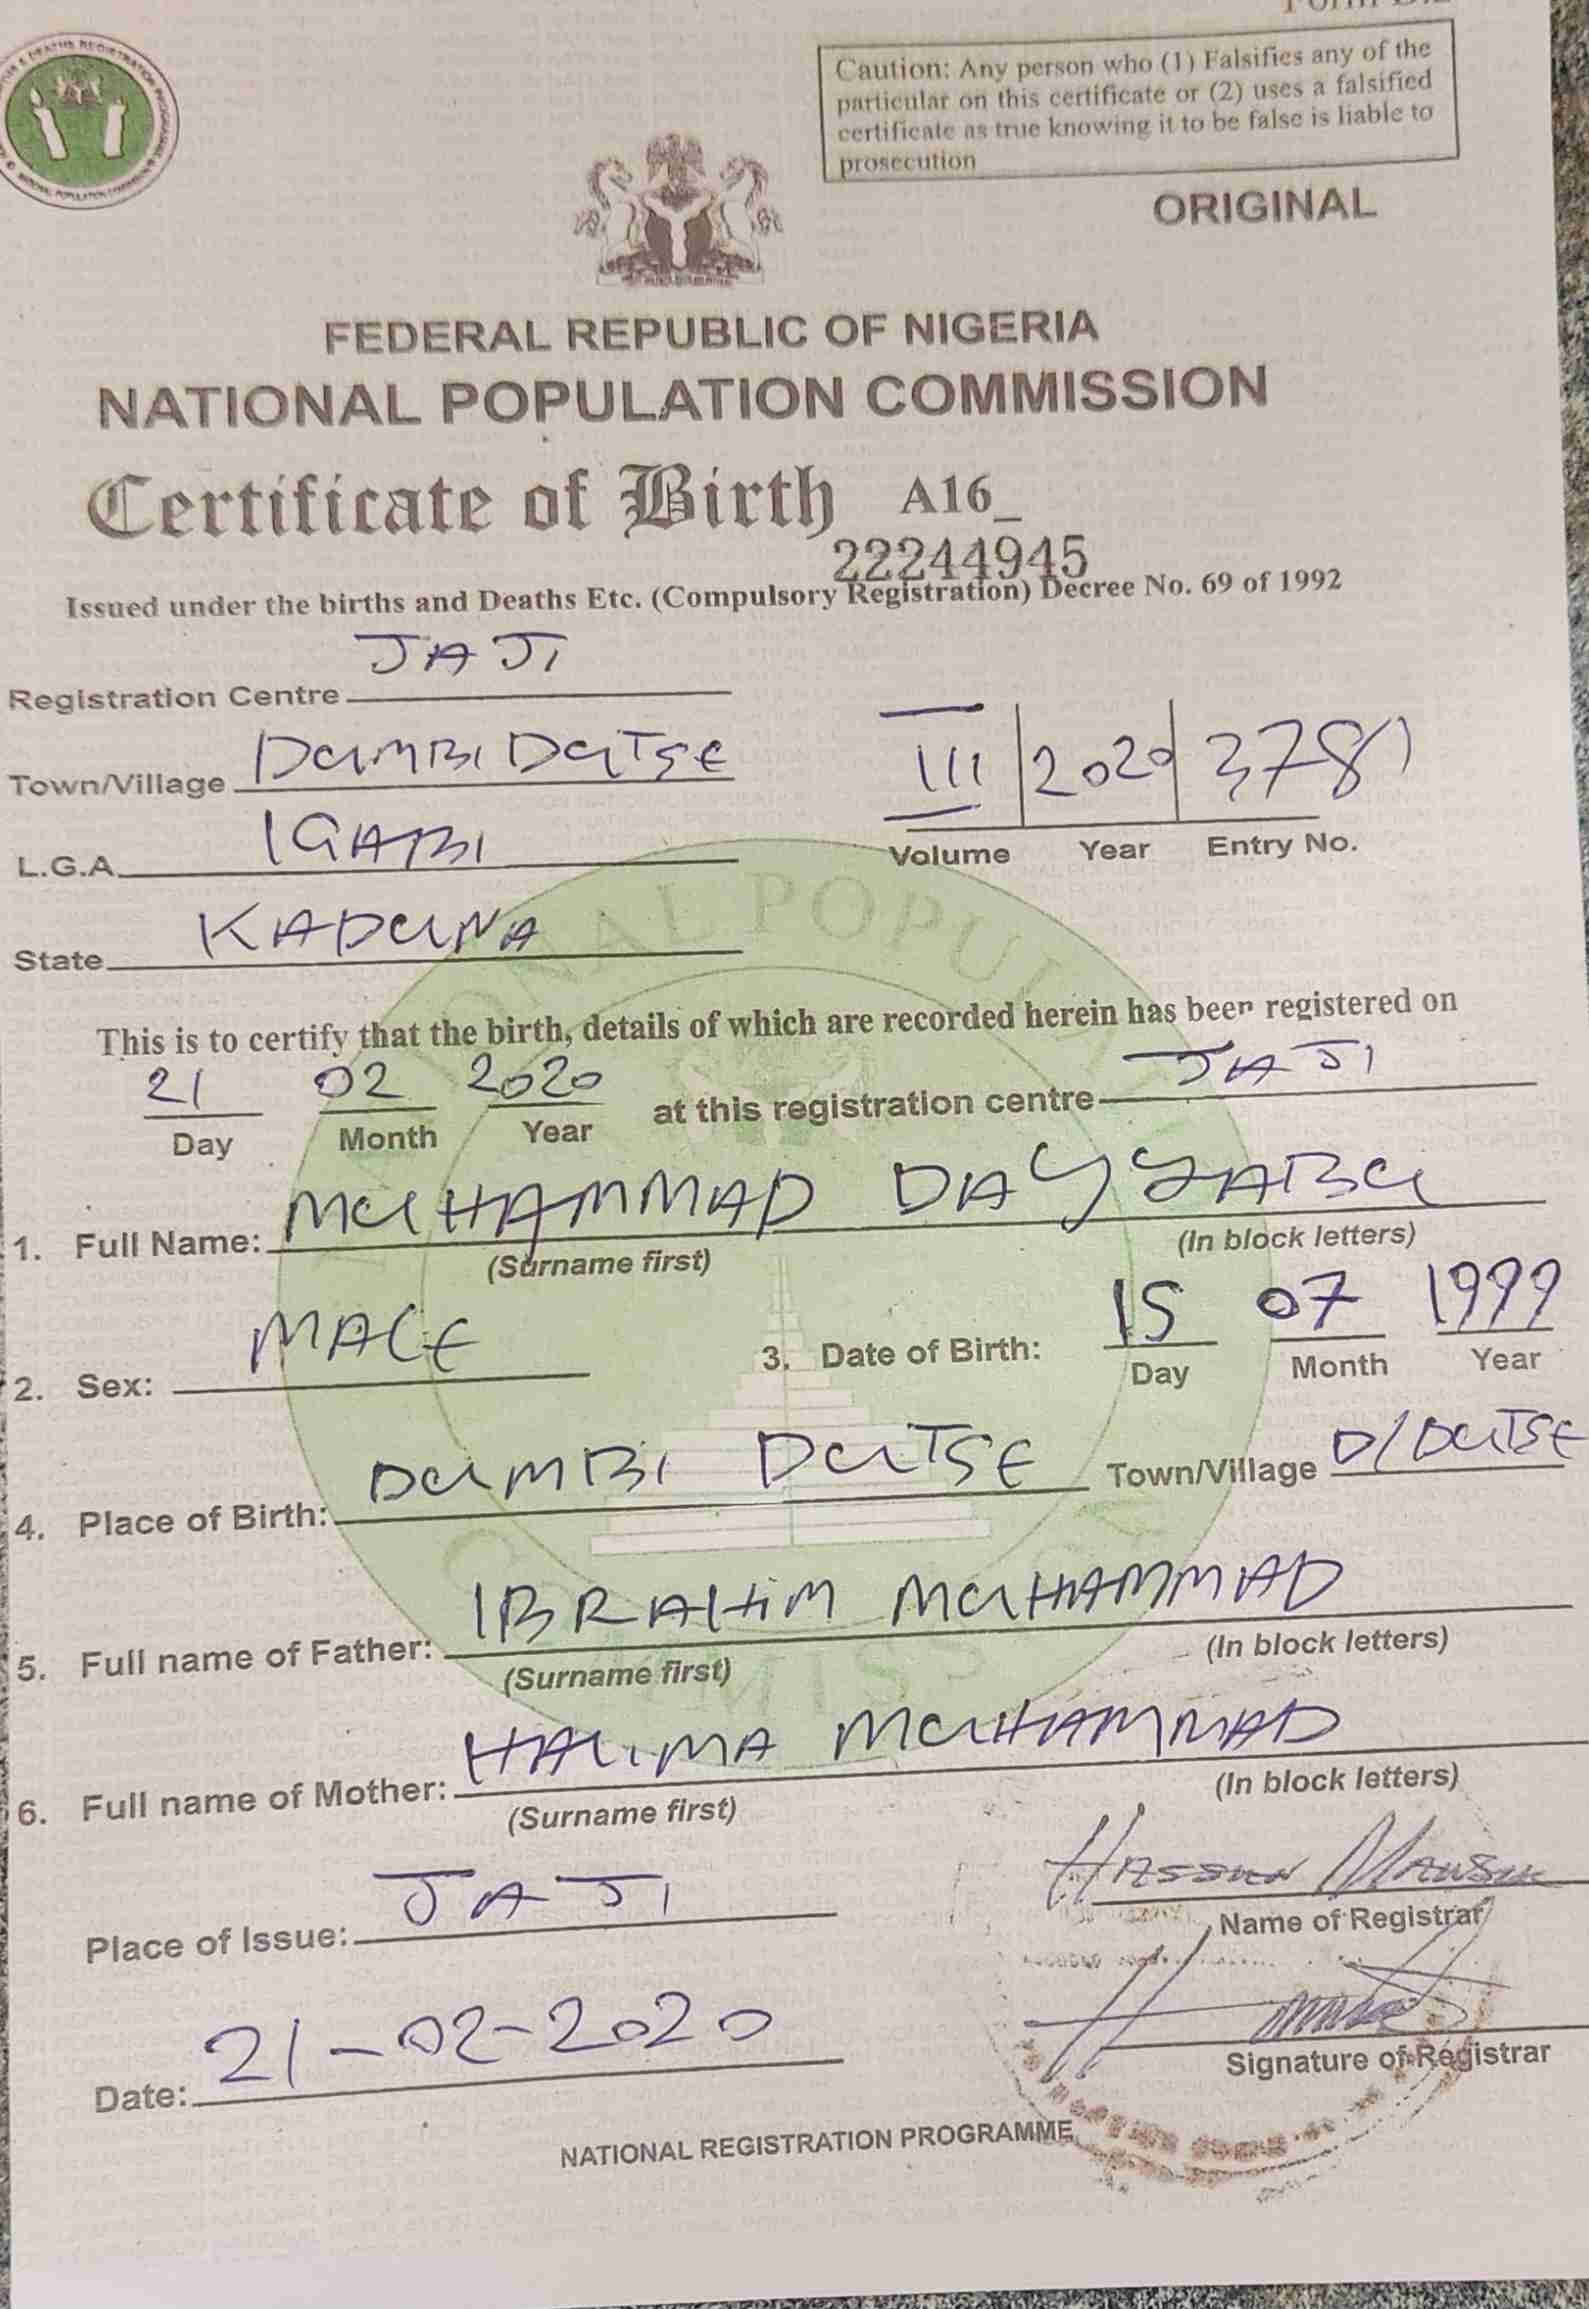 Caution: Any person who (1) Falsifies any of the
particular on this certificate or (2) uses a falsified
certificate as true knowing it to be false is liable to
prosecution
ORIGINAL
FEDERAL REPUBLIC OF NIGERIA
NATIONAL POPULATION COMMISSION
Certificate of Birth A16_
22244945
Issued under the births and Deaths Etc. (Compulsory Registration) Decree No. 69 of 1992
Registration Centre JAJI
Town/Village DUMBI DUTSE
III 2020 3780
L.G.A IGABI
Volume Year Entry No.
State KADUNA
This is to certify that the birth, details of which are recorded herein has been registered on
21 02 2020 at this registration centre JAJI
Day Month Year
1. Full Name: MUHAMMAD DAYYABU
(Surname first) (In block letters)
2. Sex: MALE 3. Date of Birth: 15 07 1999
Day Month Year
4. Place of Birth: DUMBI DUTSE Town/Village D/DUTSE
5. Full name of Father: IBRAHIM MUHAMMAD
(Surname first) (In block letters)
6. Full name of Mother: HALIMA MUHAMMAD
(Surname first) (In block letters)
Place of Issue: JAJI
Name of Registrar
Date: 21-02-2020
Signature of Registrar
NATIONAL REGISTRATION PROGRAMME